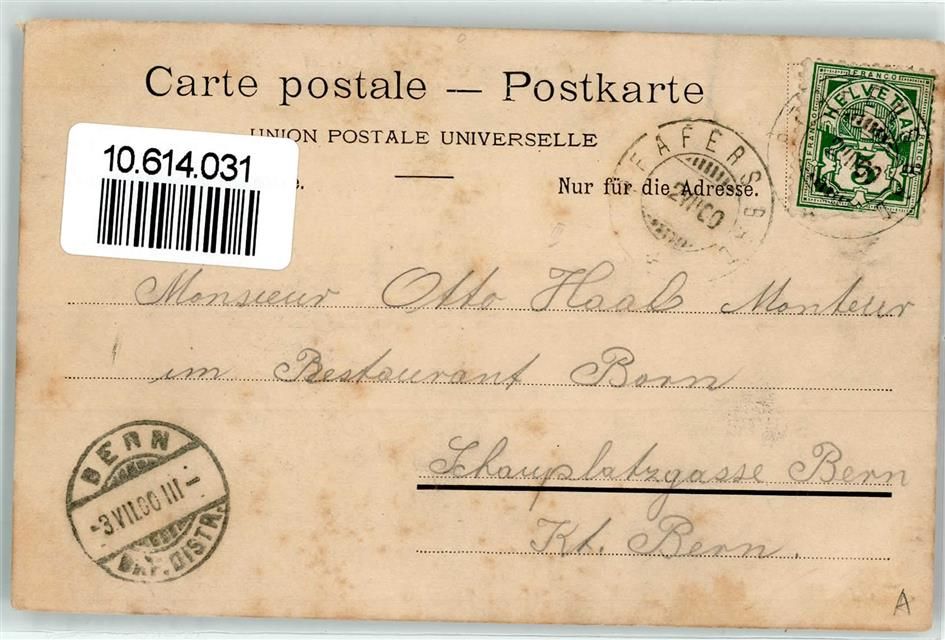 Carte postale — Postkarte
UNION POSTALE UNIVERSELLE
10.614.031
Nur für die Adresse.
FRANCO
HELVETIA
5
Monsieur Otto Haab Monteur
im Restaurant Born
Schauplatzgasse Bern
Kt. Bern.
BERN
-3.VII.00 III-
BRF. DISTR.
A